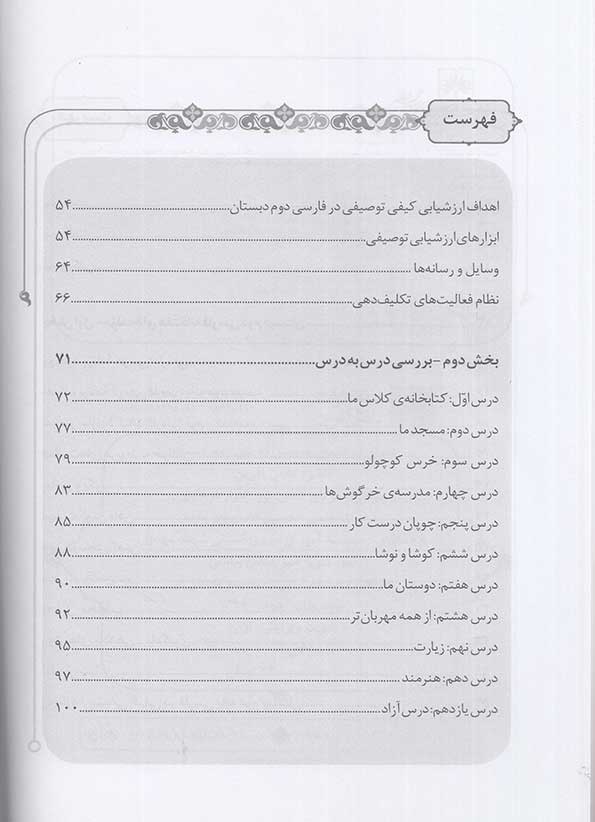 فهرست
اهداف ارزشیابی کیفی توصیفی در فارسی دوم دبستان ۵۴
ابزارهای ارزشیابی توصیفی ۵۴
وسایل و رسانه‌ها ۶۴
نظام فعالیت‌های تکلیف‌دهی ۶۶
بخش دوم - بررسی درس به درس ۷۱
درس اوّل: کتابخانه‌ی کلاس ما ۷۲
درس دوم: مسجد ما ۷۷
درس سوم: خرس کوچولو ۷۹
درس چهارم: مدرسه‌ی خرگوش‌ها ۸۳
درس پنجم: چوپان درست کار ۸۵
درس ششم: کوشا و نوشا ۸۸
درس هفتم: دوستان ما ۹۰
درس هشتم: از همه مهربان‌تر ۹۲
درس نهم: زیارت ۹۵
درس دهم: هنرمند ۹۷
درس یازدهم: درس آزاد ۱۰۰